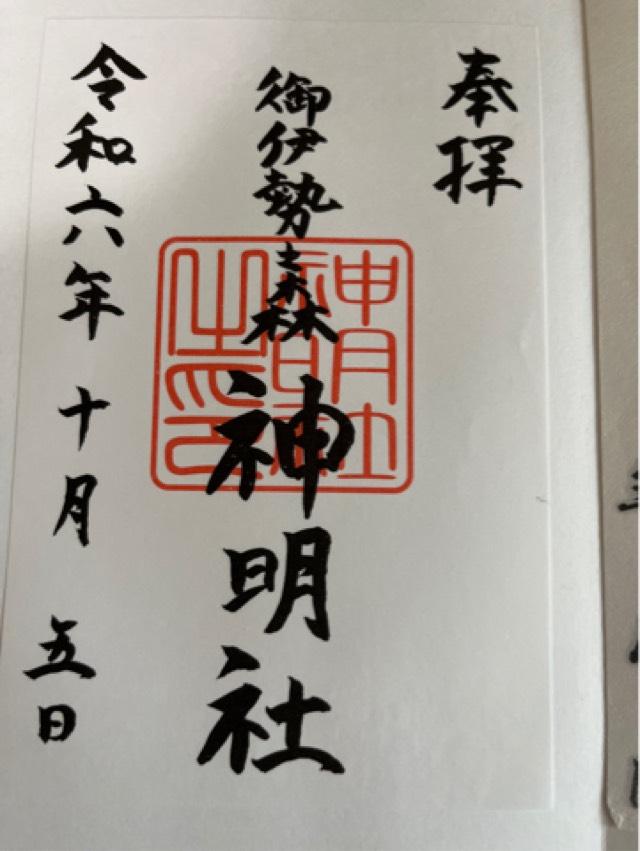 奉拝
御伊勢森
神明社
令和六年十月五日
神明社
之印